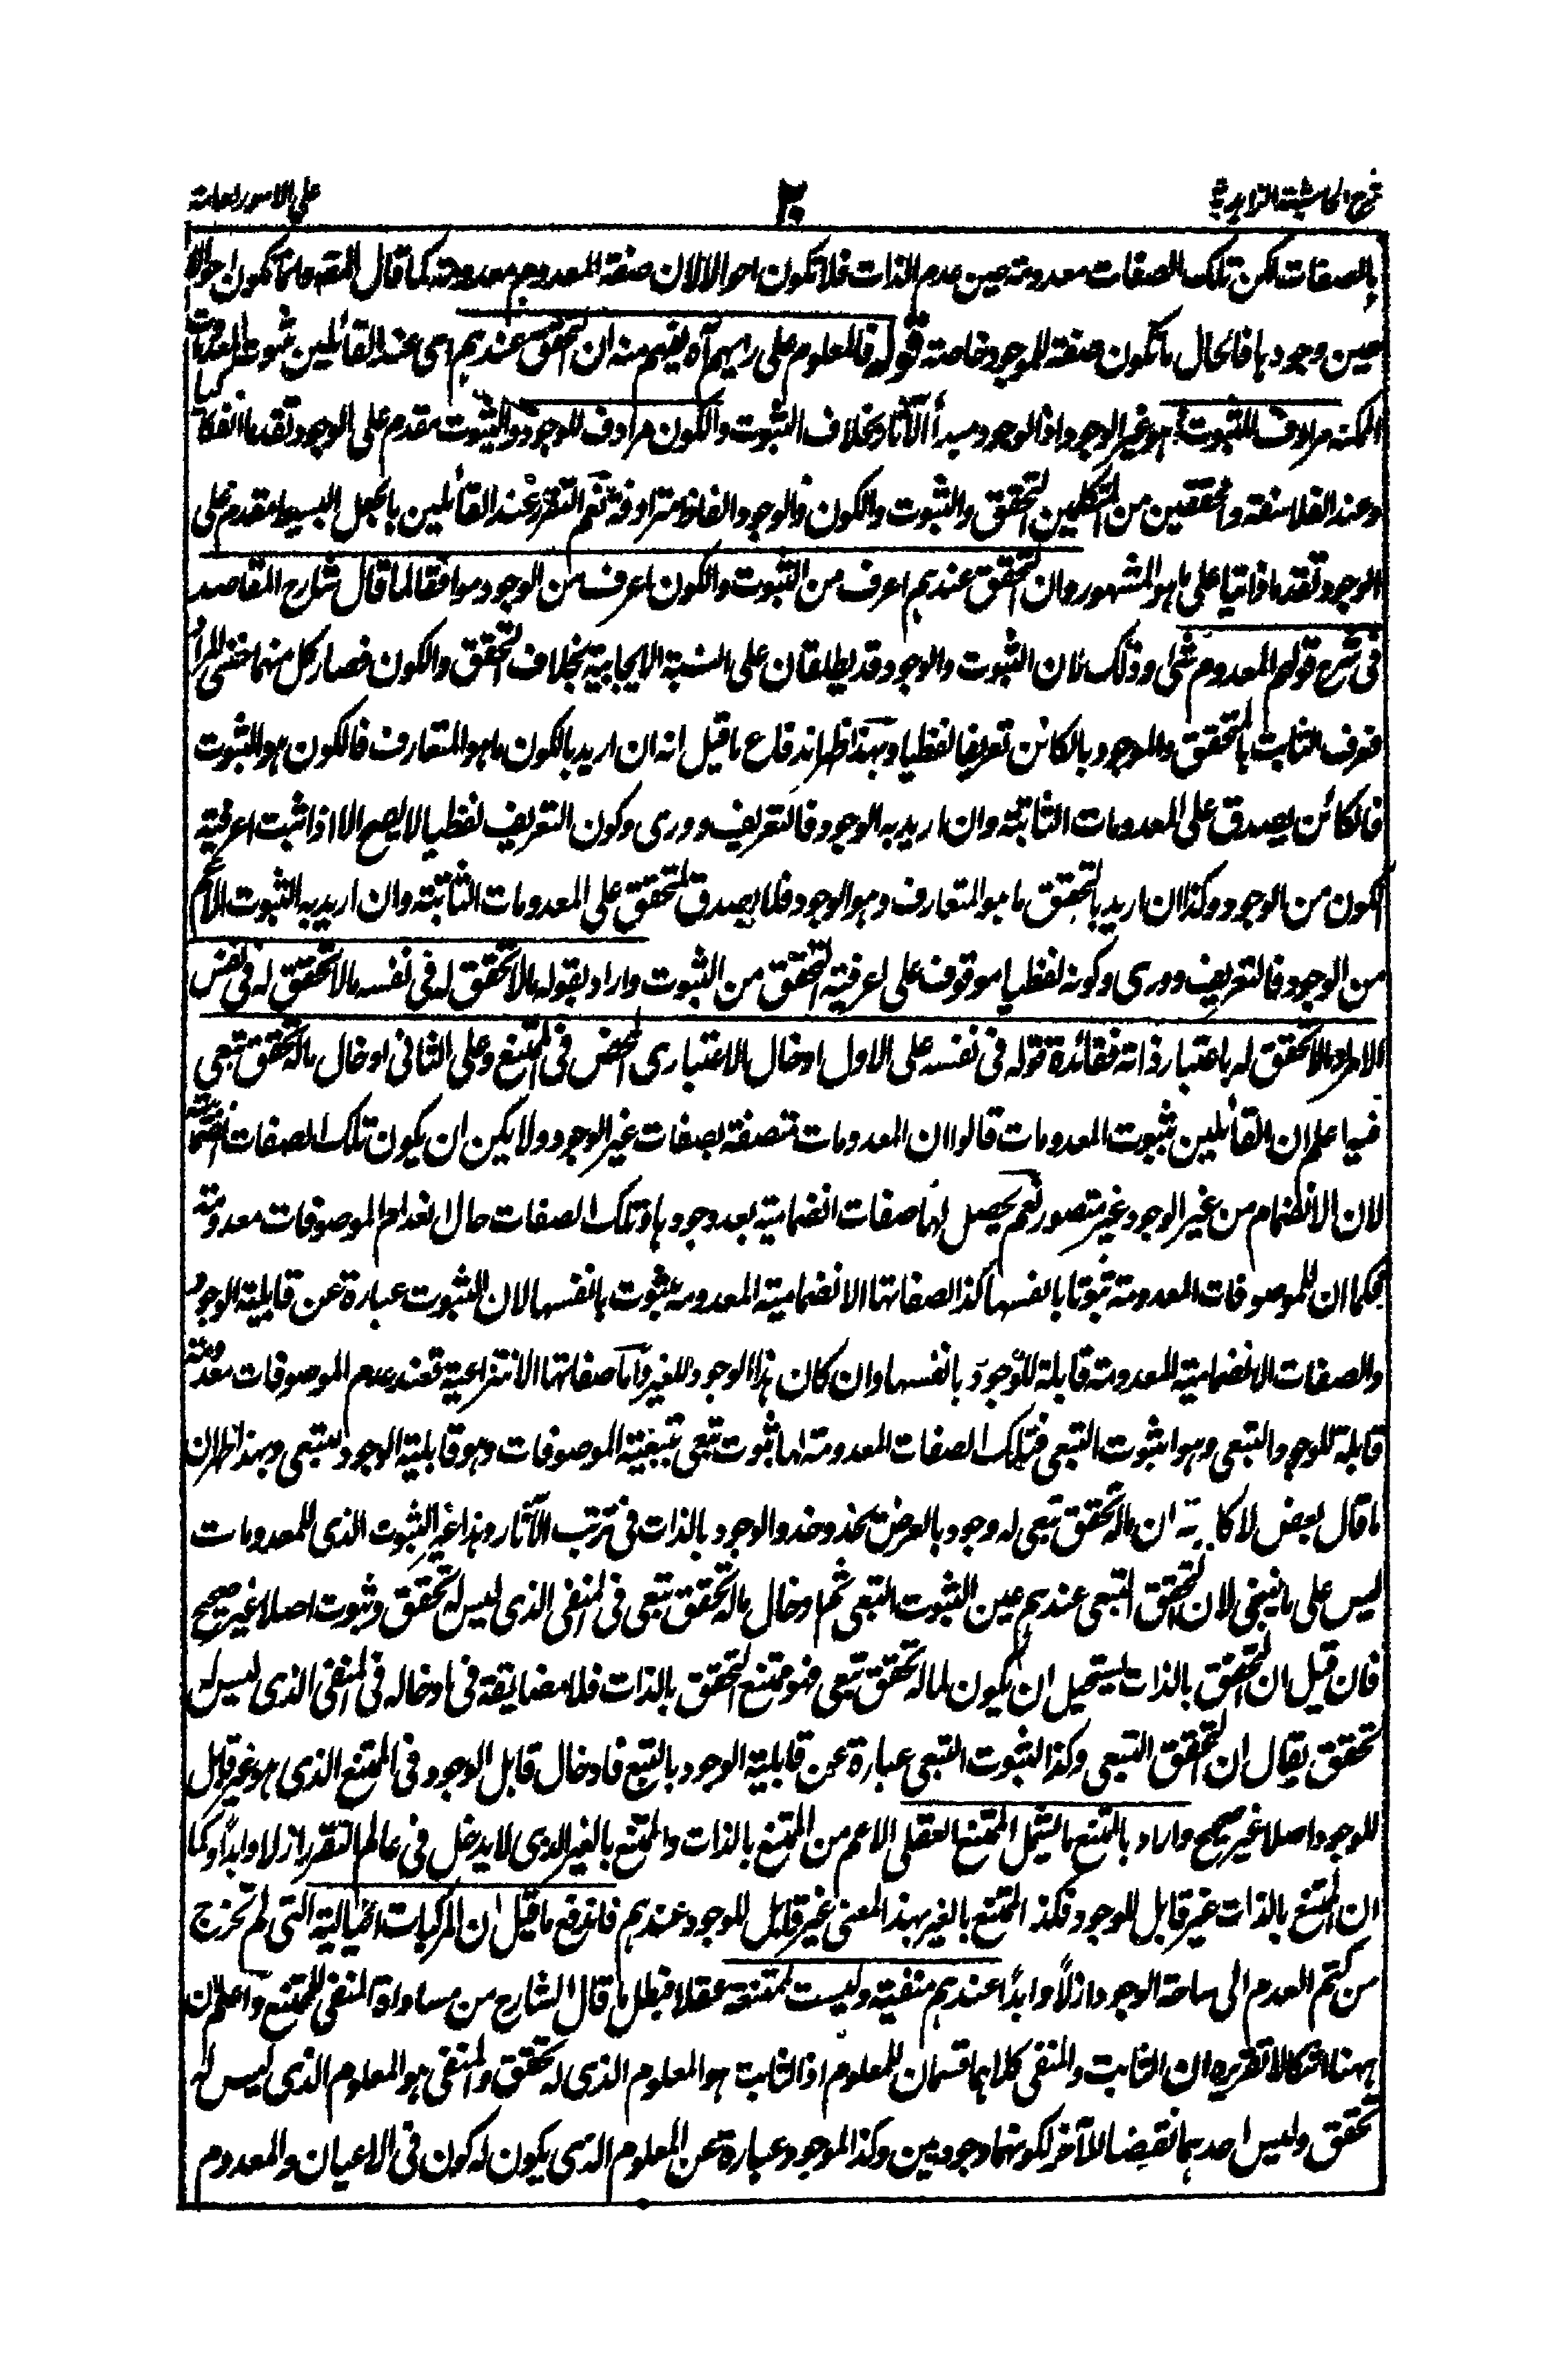 شرح الحاشية الزاهدية
٢٠
على الامور العامة
بالصفات لكن تلك الصفات معدومة حين عدم الذات فلا تكون احوالا لان صفة المعدوم معدومة كما قال المقه وانما تكون احوالا
حين وجودها فالحال ما تكون صفة للموجود خاصة قوله فالمعلوم على رايهم آه يفهم منه ان التحقق عندهم اى عند القائلين ثبوت المعدومات
الممكنة مرادف للثبوت هو غير الوجود اذ الوجود مبدأ الآثار بخلاف الثبوت والكون مرادف للوجود والثبوت مقدم على الوجود تقدما انفكاكيا
وعند الفلاسفة والمحققين من المتكلمين التحقق والثبوت والكون والوجود الفاظ مترادفة نعم التقرر عند القائلين بالجعل البسيط مقدم على
الوجود تقدما ذاتيا على ما هو المشهور وان التحقق عندهم اعرف من الثبوت والكون اعرف من الوجود موافقا لما قال شارح المقاصد
فى شرح قولهم المعدوم شئ او وذلك لان الثبوت والوجود قد يطلقان على النسبة الايجابية بخلاف التحقق والكون فصار كل منهما اخفى المراد
فعرف الثابت بالمتحقق والموجود بالكائن تعريفا لفظيا وبهذا ظهر اندفاع ما قيل انه ان اريد بالكون ما هو المتعارف فالكون هو الثبوت
فالكائن يصدق على المعدومات الثابتة وان اريد به الوجود فالتعريف دورى وكون التعريف لفظيا لا يصح الا اذا ثبت اعرفية
الكون من الوجود وكذا ان اريد بالتحقق ما هو المتعارف وهو الوجود فلا يصدق المتحقق على المعدومات الثابتة وان اريد به الثبوت الاعم
من الوجود فالتعريف دورى وكونه لفظيا موقوف على اعرفية التحقق من الثبوت واراد بقوله ما لا تحقق له فى نفسه ما لا تحقق له فى نفس
الامر او ما لا تحقق له باعتبار ذاته ففائدة قوله فى نفسه على الاول ادخال الاعتبارى المحض فى الممتنع وعلى الثانى ادخال ما له تحقق تبعى
فيه اعلم ان القائلين بثبوت المعدومات قالوا ان المعدومات متصفة بصفات غير الوجود ولا يمكن ان يكون تلك الصفات انضمامية
لان الانضمام من غير الوجود غير متصور نعم يحصل لها صفات انضمامية بعد وجودها وتلك الصفات حال انعدام الموصوفات معدومة
فكما ان للموصوفات المعدومة ثبوتا بانفسها كذا لصفاتها الانضمامية المعدومة ثبوت بانفسها لان الثبوت عبارة عن قابلية الوجود
والصفات الانضمامية المعدومة قابلة للوجود بانفسها وان كان هذا الوجود للغير واما صفاتها الانتزاعية فعند عدم الموصوفات معدومة
قابلة للوجود التبعى وهو الثبوت التبعى فتلك الصفات المعدومة لها ثبوت تبعى بتبعية الموصوفات وهو قابلية الوجود التبعى وبهذا ظهر ان
ما قال بعض الاكابر ان ما له تحقق تبعى له وجود بالعرض يحذو حذو الوجود بالذات فى ترتب الآثار وهذا غير الثبوت الذى للمعدومات
ليس على ما ينبغى لان التحقق التبعى عندهم عين الثبوت التبعى ثم ادخال ما له تحقق تبعى فى المنفى الذى ليس له تحقق وثبوت اصلا غير صحيح
فان قيل ان التحقق بالذات يستحيل ان يكون لما له تحقق تبعى فهو ممتنع التحقق بالذات فلا مضايقة فى ادخاله فى المنفى الذى ليس له
تحقق يقال ان التحقق التبعى وكذا الثبوت التبعى عبارة عن قابلية الوجود بالتبع فادخال قابل الوجود فى الممتنع الذى هو غير قابل
للوجود اصلا غير صحيح واراد بالممتنع ما يشمل الممتنع العقلى الاعم من الممتنع بالذات والممتنع بالغير الذى لا يدخل فى عالم التقرر ازلا وابدا وكما
ان الممتنع بالذات غير قابل للوجود فكذا الممتنع بالغير بهذا المعنى غير قابل للوجود عندهم فاندفع ما قيل ان المركبات الخيالية التى لم تخرج
من كتم العدم الى ساحة الوجود ازلاً وابداً عندهم منفية وليست ممتنعة عقلا فبطل ما قال الشارح من مساواة المنفى للممتنع واعلم ان
ههنا اشكالا تقريره ان الثابت والمنفى كلاهما قسمان للمعلوم اذ الثابت هو المعلوم الذى له تحقق والمنفى هو المعلوم الذى ليس له
تحقق وليس احدهما نقيضا للآخر لكونهما وجوديين وكذا الموجود عبارة عن المعلوم الذى يكون له كون فى الاعيان والمعدوم